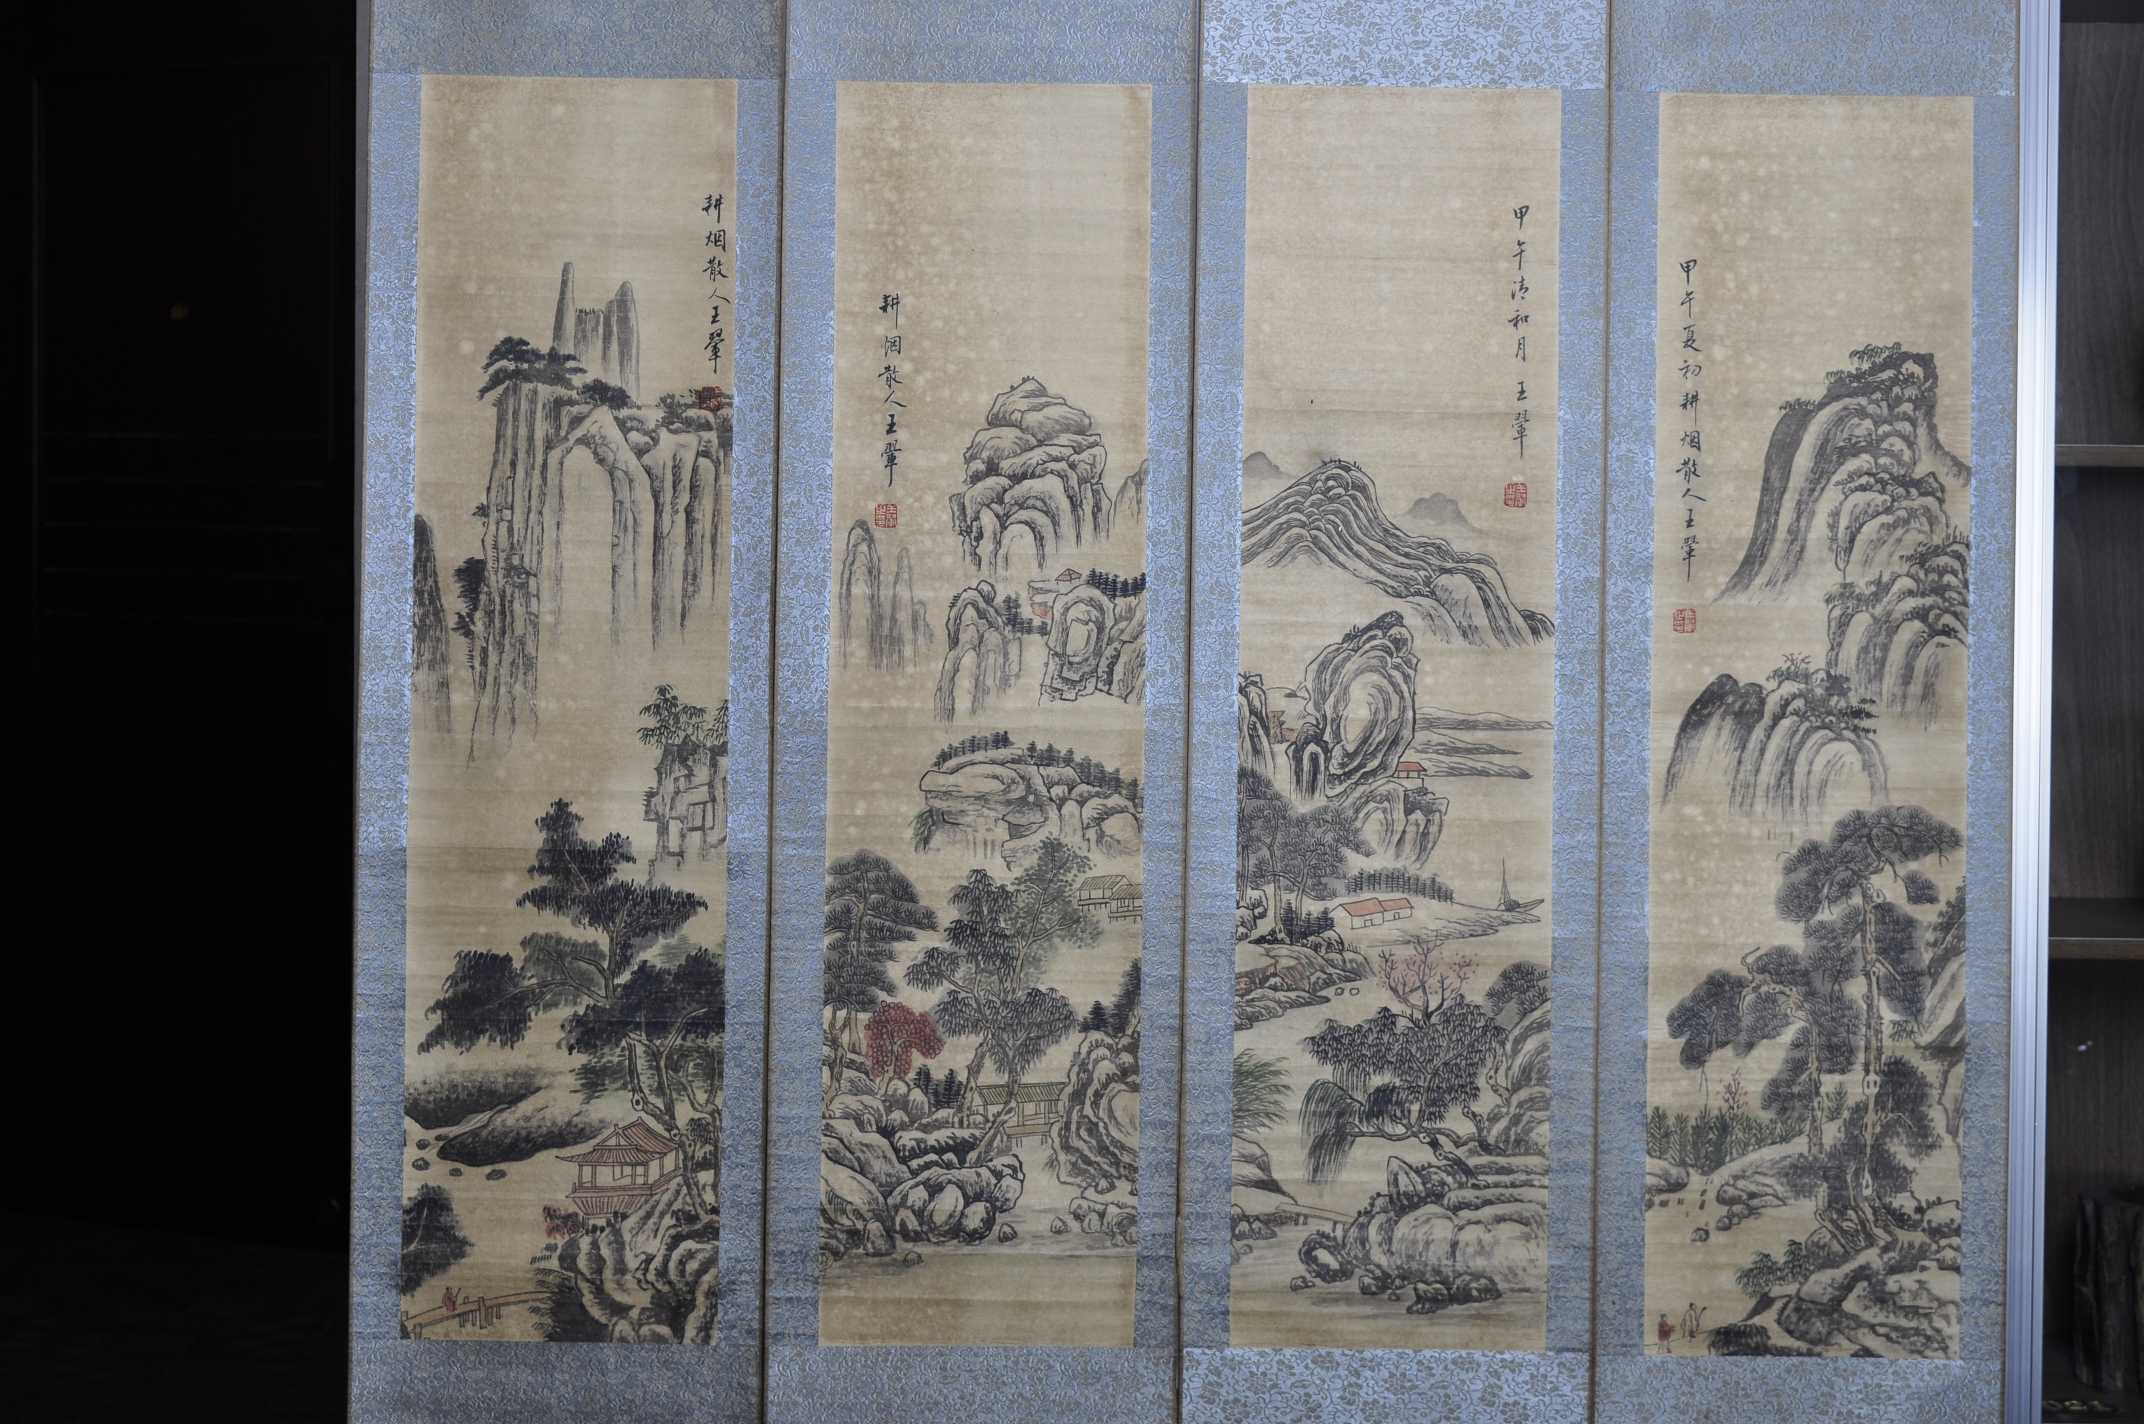 耕烟散人王翚
耕烟散人王翚
甲午清和月 王翚
甲午夏初耕烟散人王翚